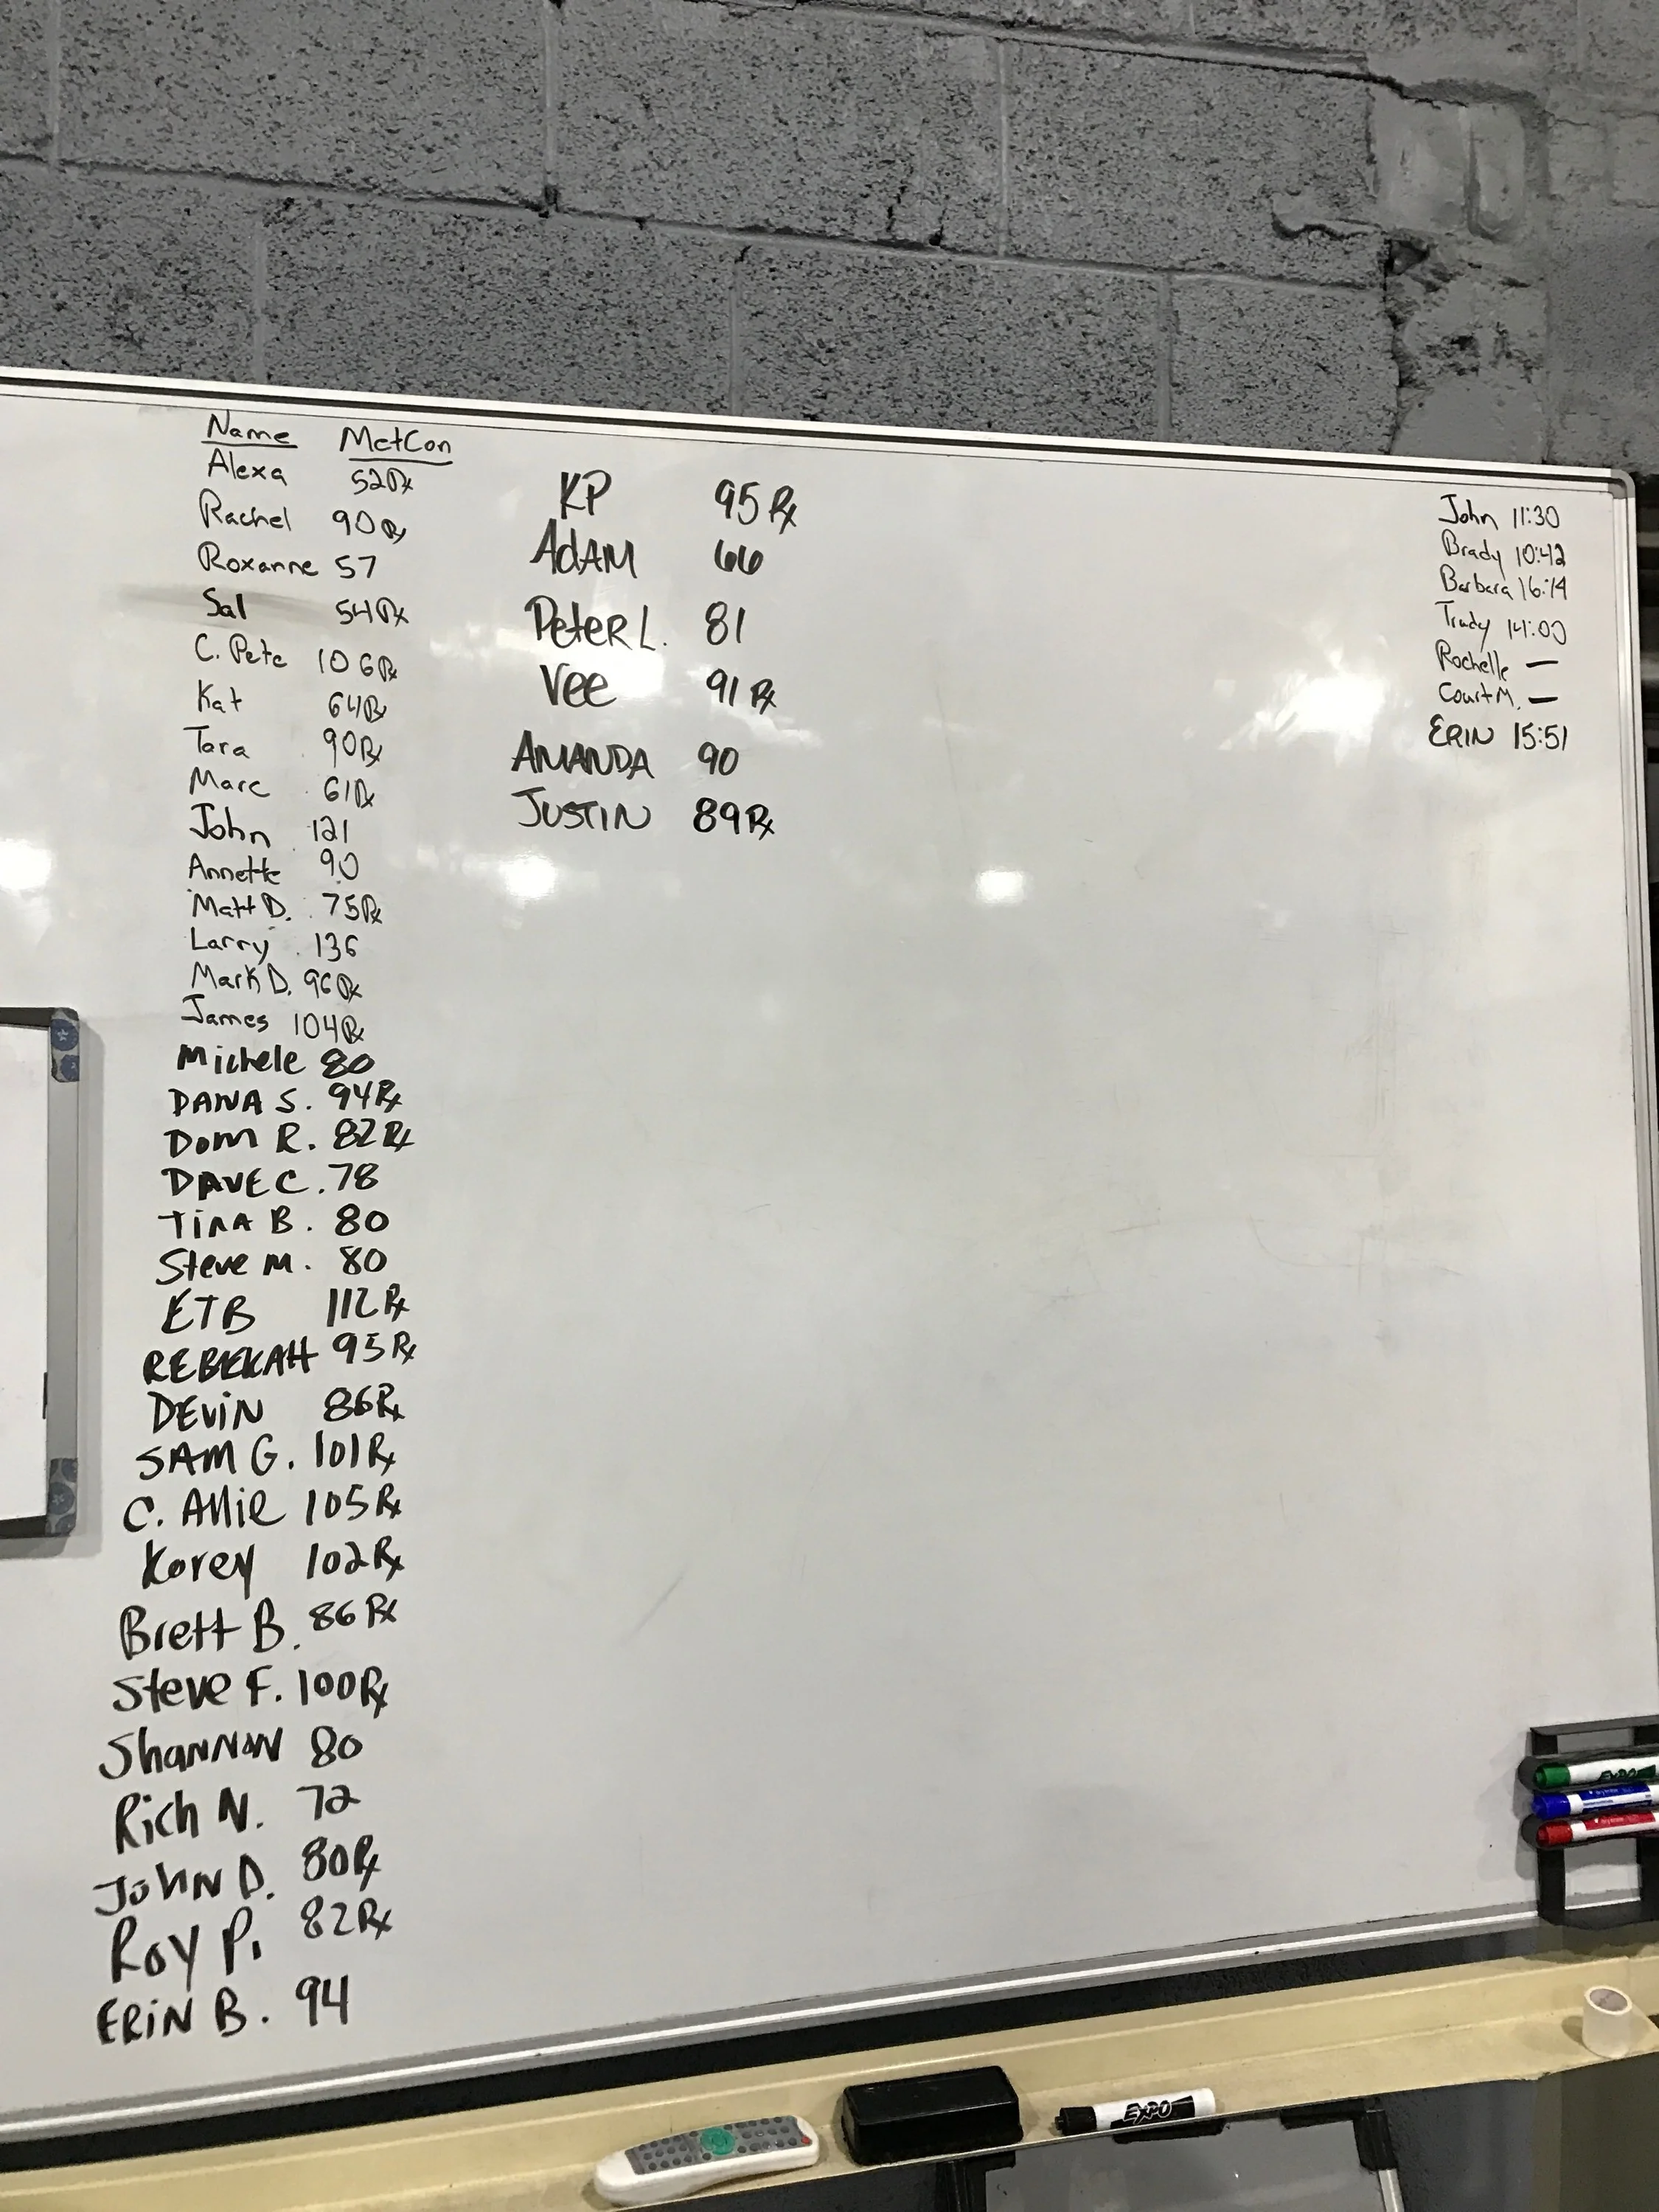 Name MetCon
Alexa 52Rx
Rachel 90Rx
Roxanne 57
Sal 54Rx
C. Pete 106Rx
Kat 64Rx
Tara 90Rx
Marc 61Rx
John 121
Annette 90
Matt D. 75Rx
Larry 136
Mark D. 96Rx
James 104Rx
Michele 80
DANA S. 94Rx
Dom R. 82Rx
DAVE C. 78
TINA B. 80
Steve M. 80
ETB 112Rx
REBEKAH 95Rx
DEViN 86Rx
SAM G. 101Rx
C. Allie 105Rx
Korey 102Rx
Brett B. 86Rx
Steve F. 100Rx
ShaNNoN 80
Rich N. 72
JohN D. 80Rx
Roy P. 82Rx
ERiN B. 94
KP 95Rx
AdAM 66
PeteR L. 81
Vee 91Rx
AMANDA 90
JUSTIN 89Rx
John 11:30
Brady 10:42
Barbara 16:14
Trudy 14:00
Rochelle —
Court M. —
ERIN 15:51
EXPO
EXPO